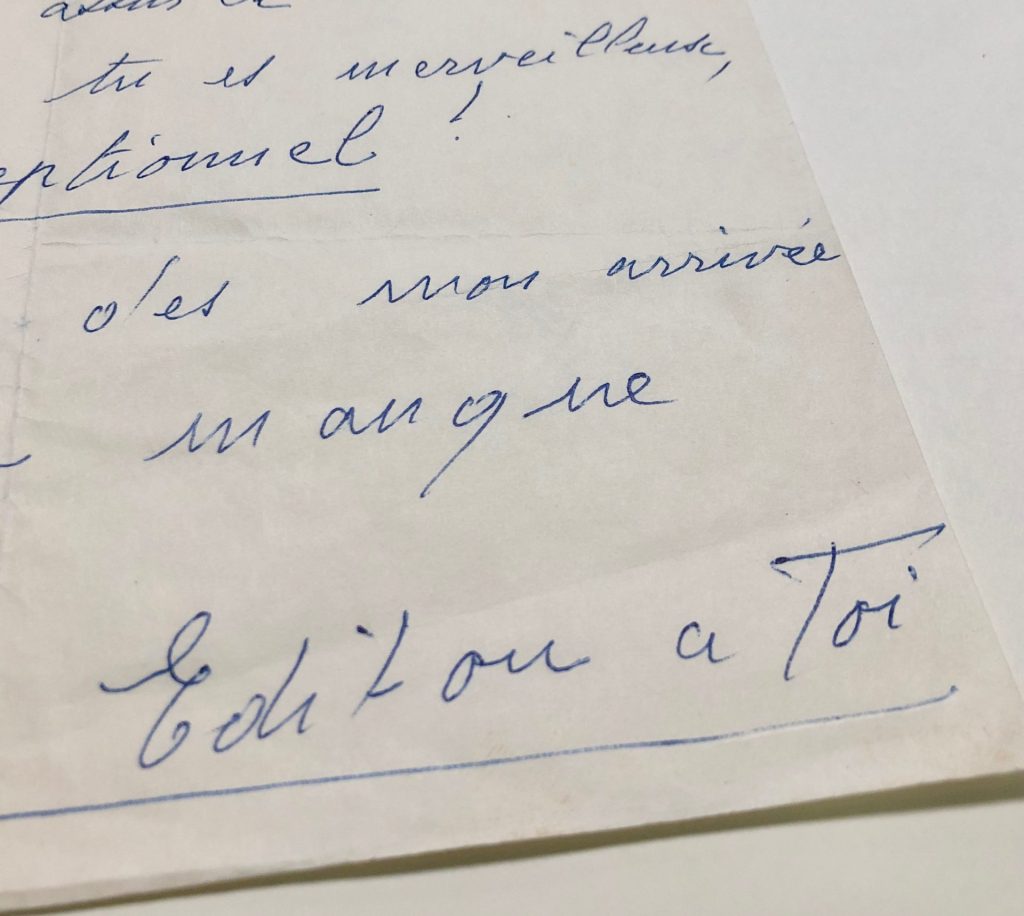 tu es merveilleuse,
eptionnel !
dès mon arrivée
manque
Editou a Toi